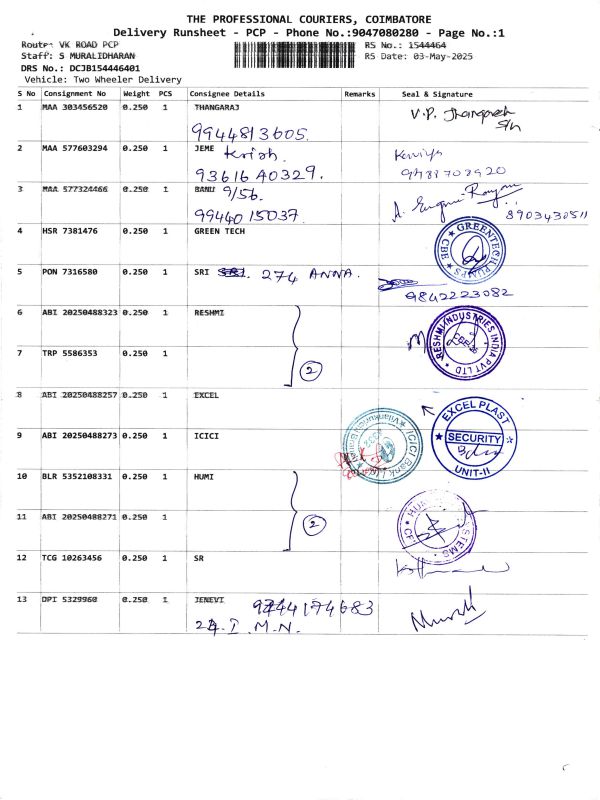 THE PROFESSIONAL COURIERS, COIMBATORE
Delivery Runsheet - PCP - Phone No.:9047080280 - Page No.:1
Route: VK ROAD PCP
RS No.: 1544464
Staff: S MURALIDHARAN
RS Date: 03-May-2025
DRS No.: DCJB154446401
Vehicle: Two Wheeler Delivery
S No Consignment No Weight PCS Consignee Details Remarks Seal & Signature
1 MAA 303456520 0.250 1 THANGARAJ
9944813605.
2 MAA 577603294 0.250 1 JEME Krish.
93616 40329. 9488708920
3 MAA 577324466 0.250 1 BANU 9/56.
99440 15037. 8903430511
4 HSR 7381476 0.250 1 GREEN TECH
GREENTECH PUMPS CBE
5 PON 7316580 0.250 1 SRI 274 ANNA.
9842223082
6 ABI 20250488323 0.250 1 RESHMI
RESHMI INDUSTRIES INDIA PVT LTD
7 TRP 5586353 0.250 1
2
8 ABI 20250488257 0.250 1 EXCEL
EXCEL PLAST
SECURITY
UNIT-II
9 ABI 20250488273 0.250 1 ICICI
ICICI Bank
10 BLR 5352108331 0.250 1 HUMI
11 ABI 20250488271 0.250 1
2
12 TCG 10263456 0.250 1 SR
13 DPI 5329960 0.250 1 JENEVI 9744174683
24. I. M.N. Murali